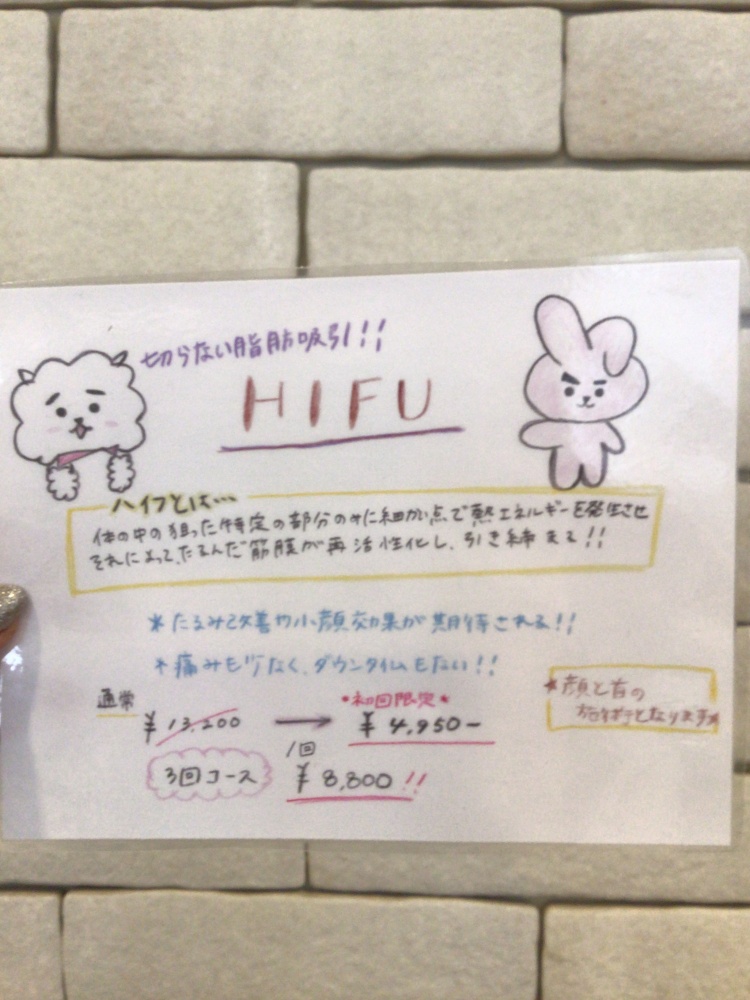 切らない脂肪吸引!!
HIFU
ハイフとは…
体の中の狙った特定の部分のみに細かい点で熱エネルギーを発生させ
それによって、たるんだ筋膜が再活性化し、引き締まる!!
*たるみ改善や小顔効果が期待される!!
*痛みも少なく、ダウンタイムもない!!
通常
¥13,200 → *初回限定* ¥4,950-
3回コース 1回 ¥8,800!!
*顔と首の
施術となります*